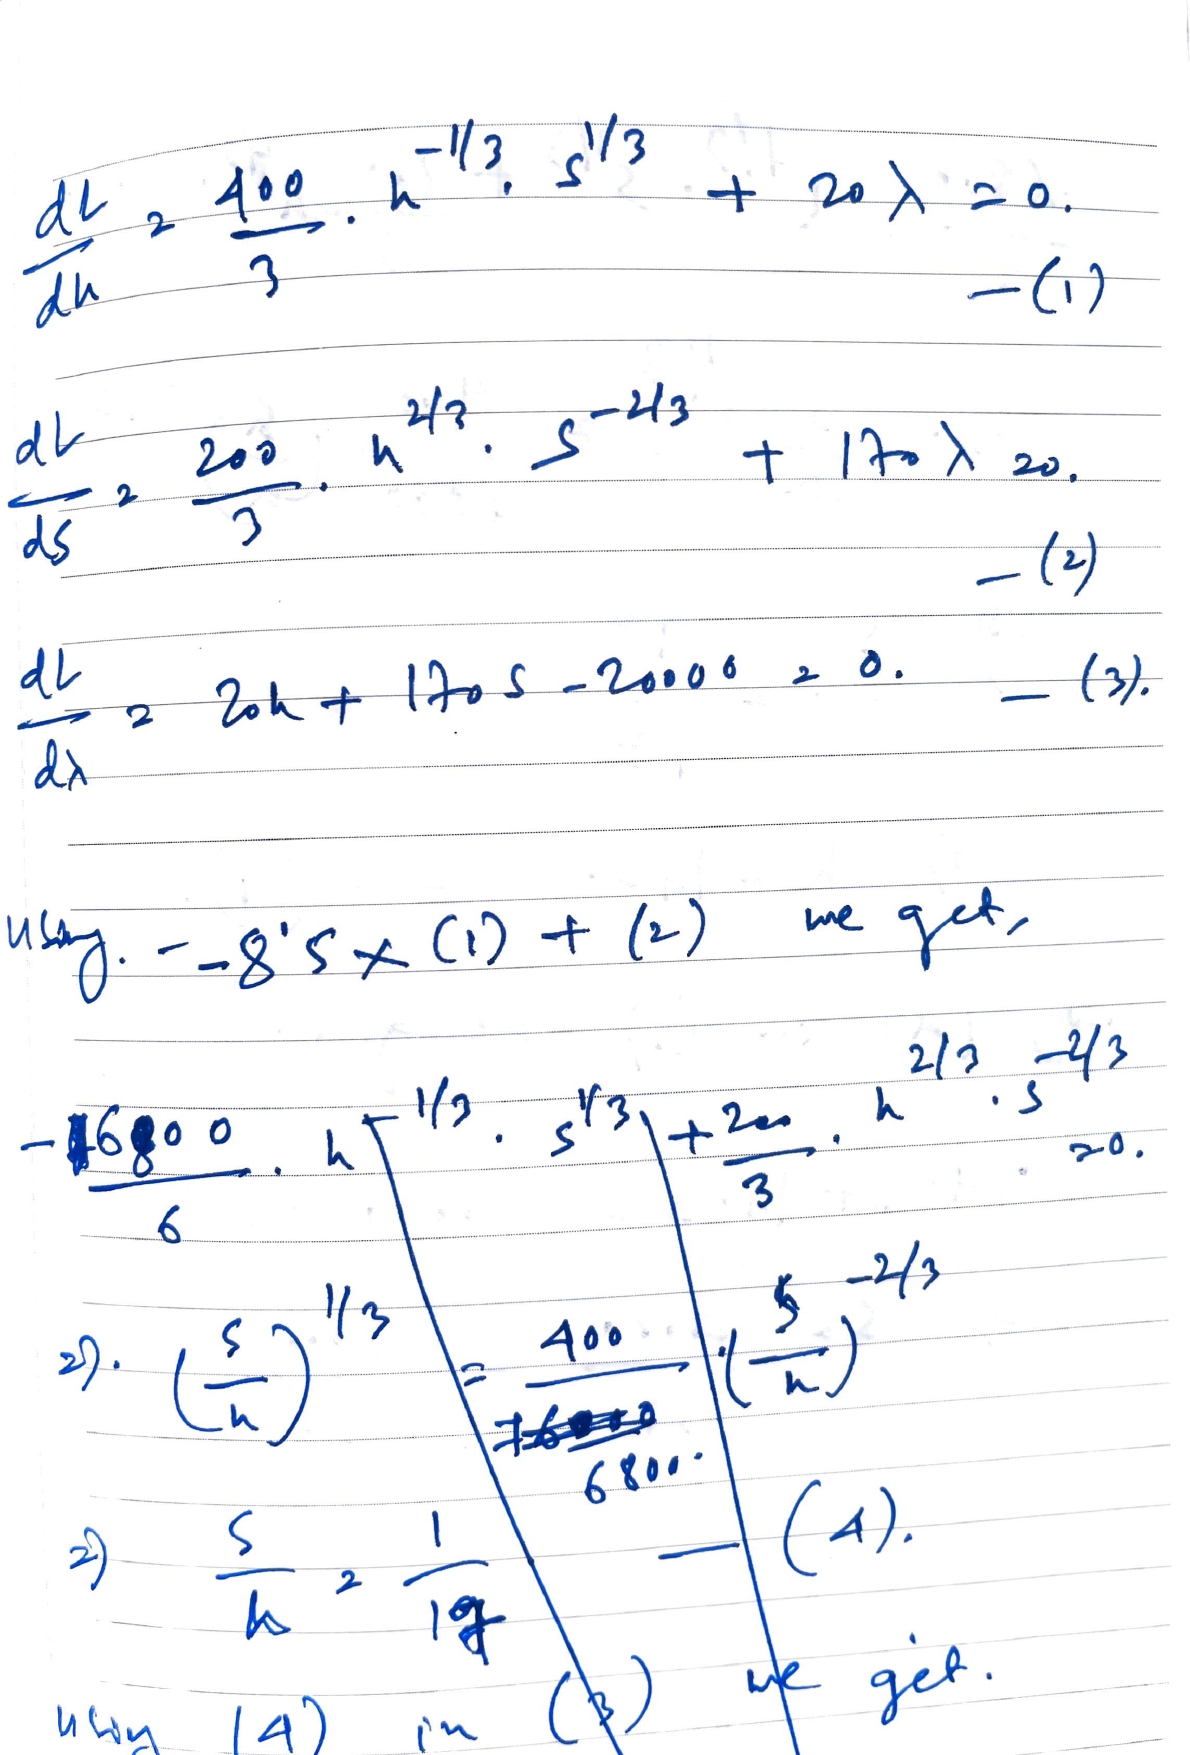 dL/dh = 400/3 . h^-1/3 . s^1/3 + 20 λ = 0.
— (1)
dL/ds = 200/3 . h^2/3 . s^-2/3 + 170 λ = 0.
— (2)
dL/dλ = 20h + 170 s - 20000 = 0. — (3).
Using. - -8.5 x (1) + (2) we get,
- 6800/6 . h^-1/3 . s^1/3 + 200/3 . h^2/3 . s^-2/3 = 0.
=> . (s/h)^1/3 = 400/6800 . (s/h)^-2/3
=> s/h = 1/17 — (4).
using (4) in (3) we get.